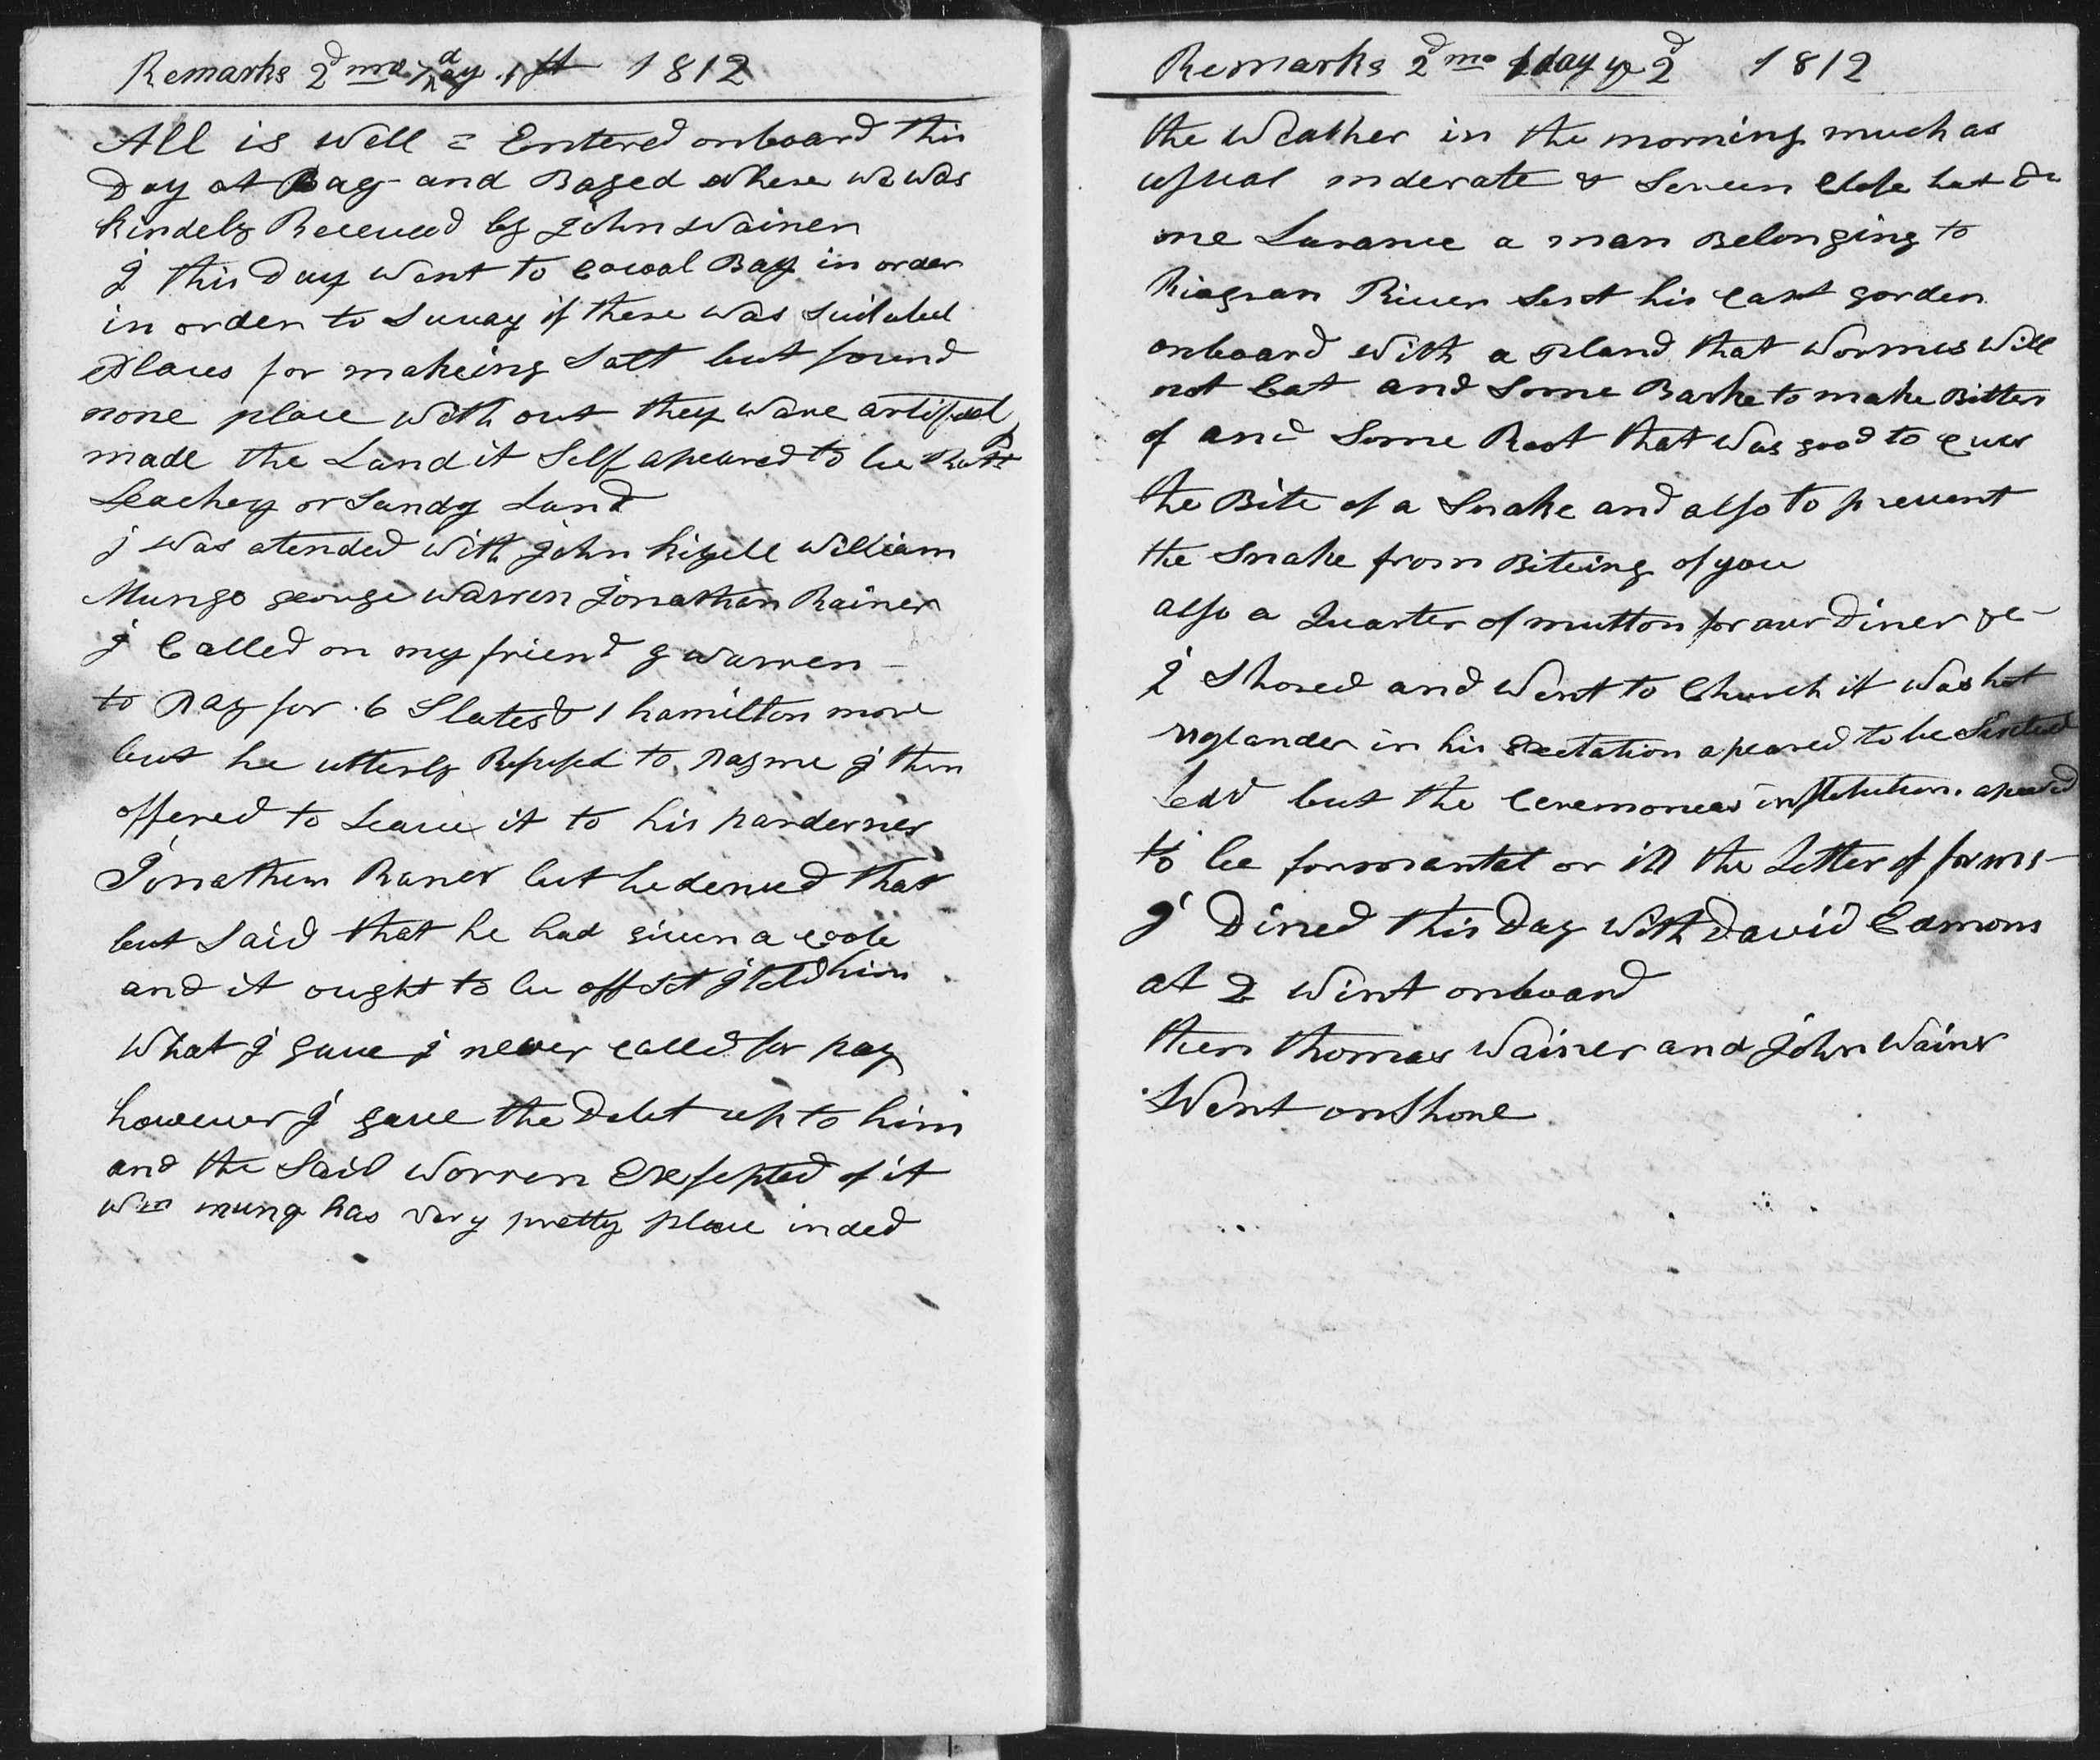 Remarks 2d mo 7 day 1st 1812
All is Well = Entered onboard this
Day at Bag and Baged Where we was
kindely Received by John Wainer
J this Day Want to Bay in order
in order to Suvay if there was Suitabel
places for makeing Salt but found
none place with out they ware artifisel
made the Land it Self apeared to be
Leachey or Sandy Land
j was atended with John kizell William
Mungo george Warren Jonathan Rainer
j Called on my friend g warren –
to pay for 6 Slates & 1 hamilton more
but he utterly Refused to pay me j then
offered to Leave it to his parderner
Jonathen Raner but he denied that
but Said that he had given a
and it ought to be off Set j told him
What j gave j never called for pay
however j gave the Debt up to him
and the Said Worren Exsepted of it
Wm mung has very pretty place inded
Remarks 2d mo 1 day ye 2d 1812
the Weather in the morning much as
usual moderate & Sereen
one Lurance a man Belonging to
River Sent his garden
onboard with a pland that Wormes Will
not Eat and Some Barke to make Bitters
of and Some Root that was good to cure
the Bite of a Snake and also to prevent
the Snake from Biteing of you
also a Quarter of mutton for our Diner &c –
j Shored and Went to Church it was hot
in his apeared to be
but the Ceremonies institution apeared
to be or in the Letter of forms –
j Dined this Day With David Edmons
at 2 Wint onboard
then thomas Wainer and John Wainer
Went onShore